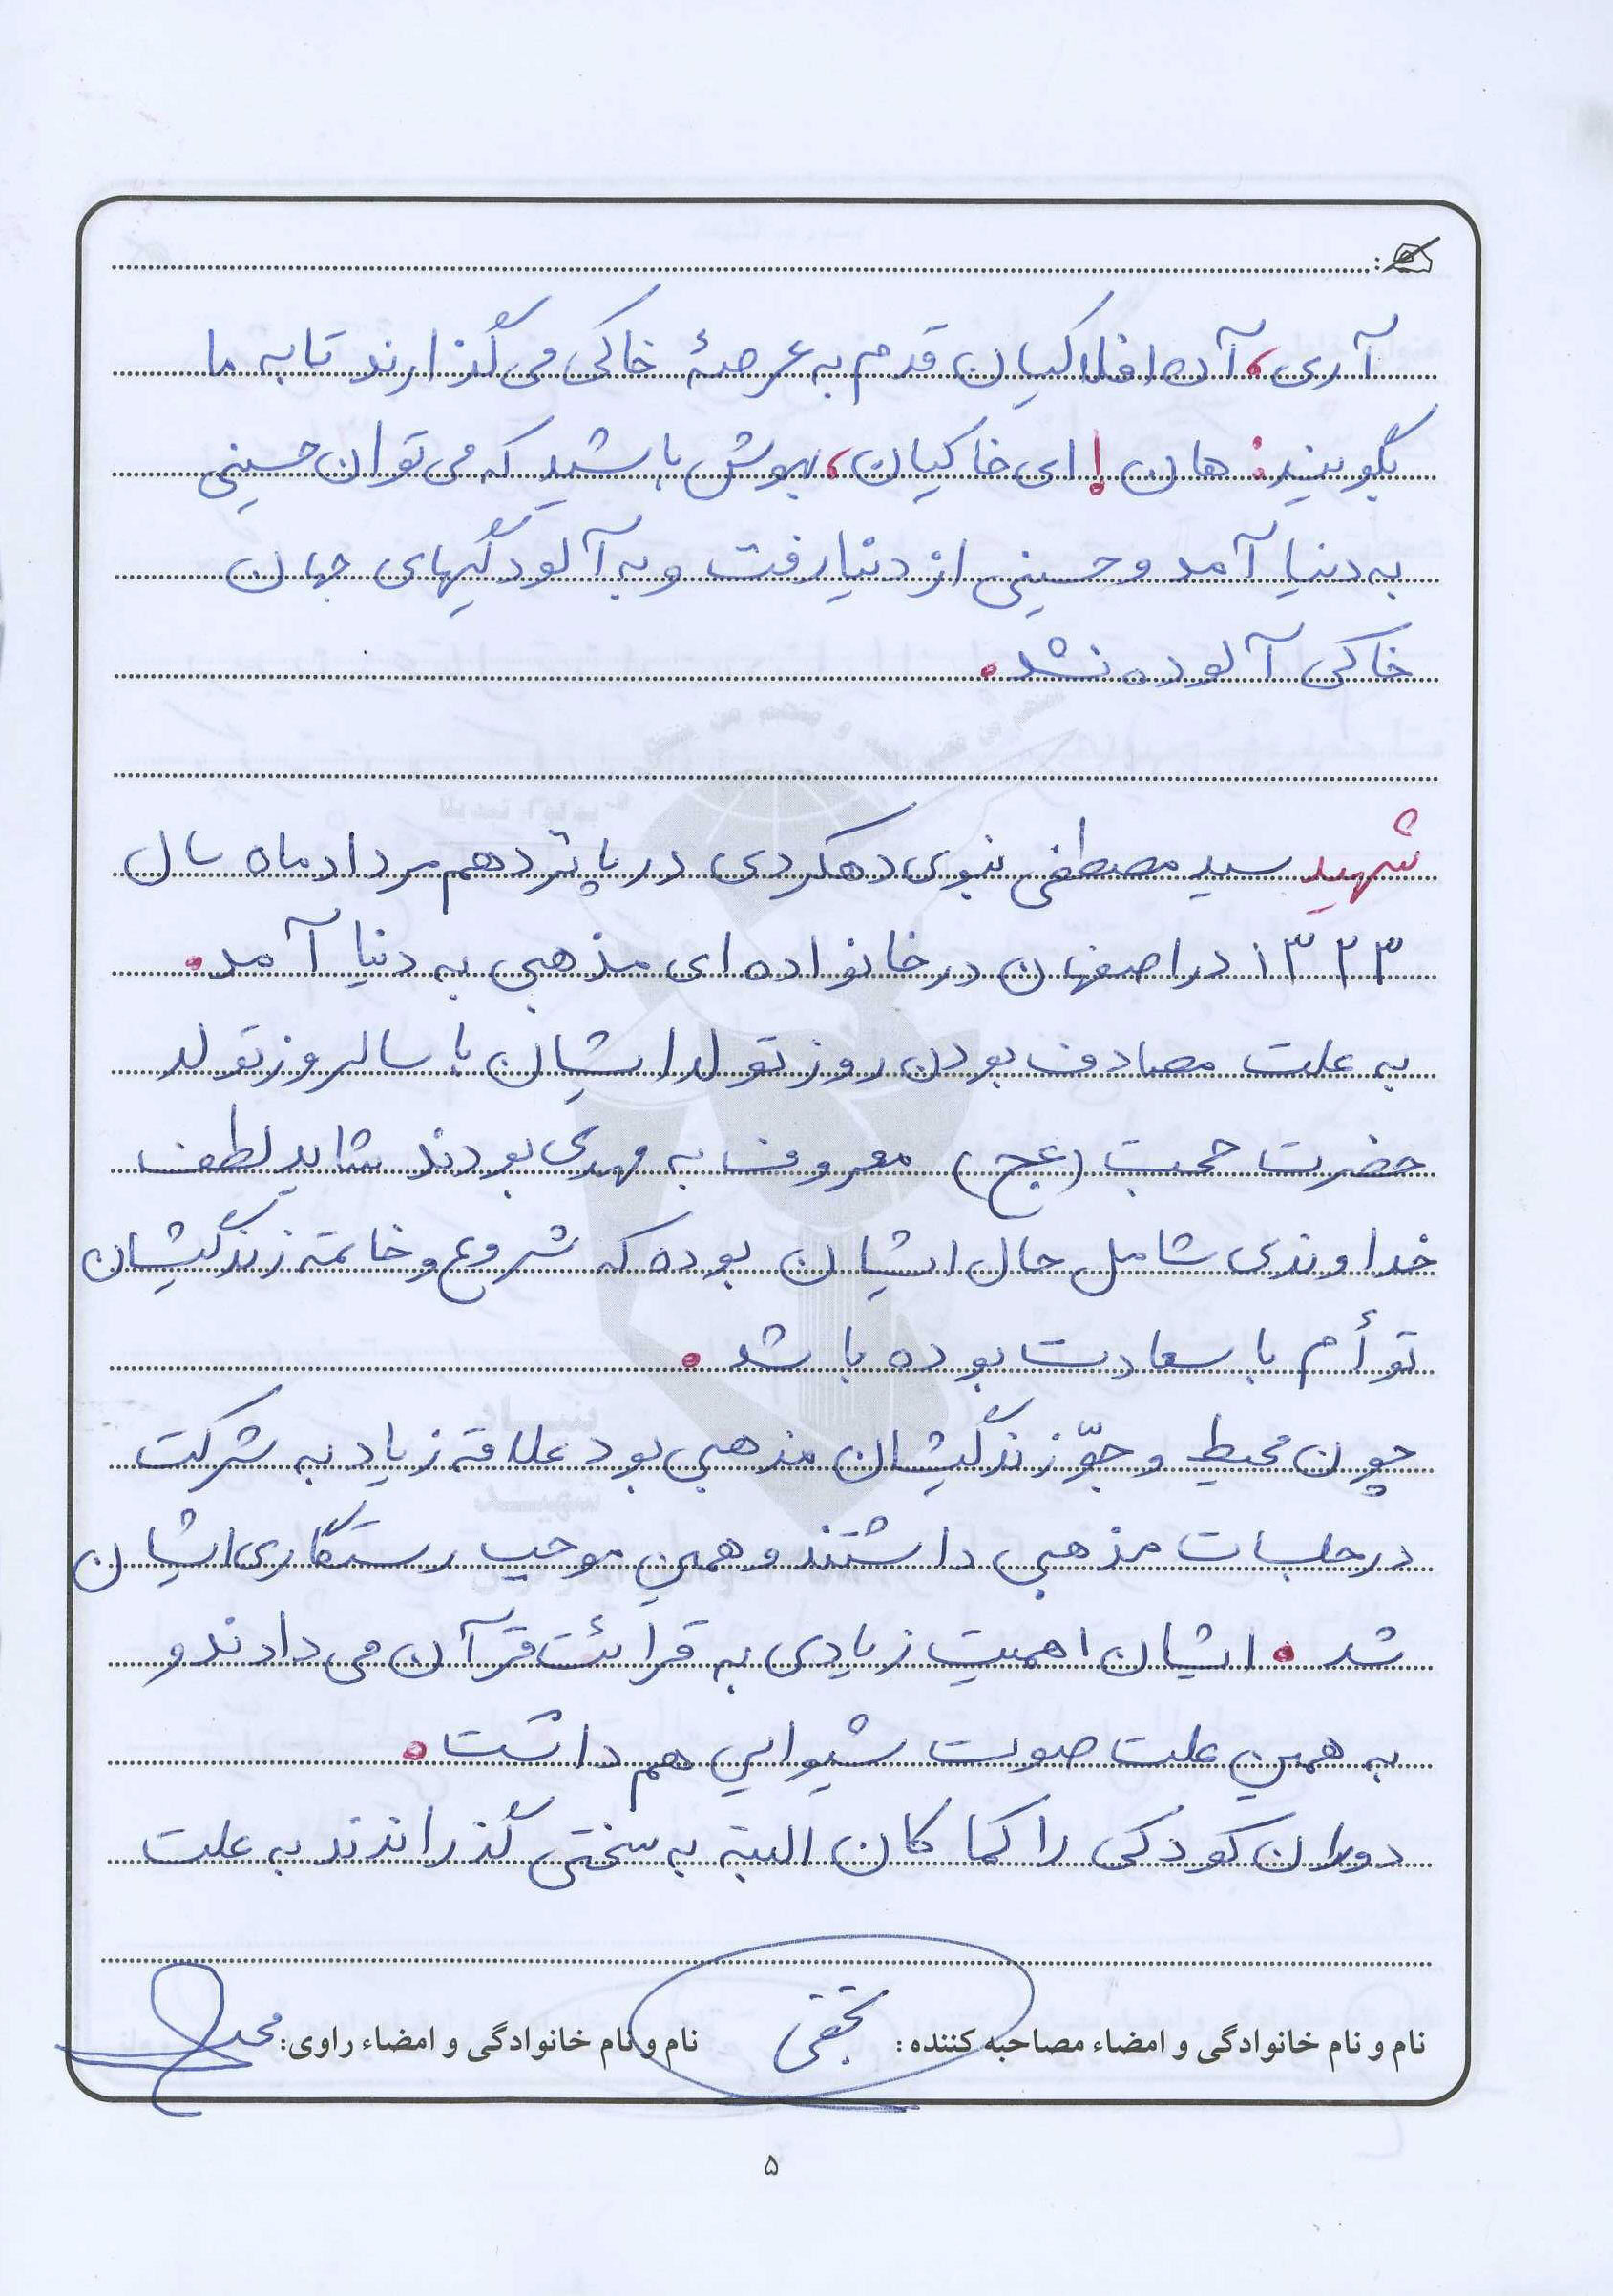 آری، آن افلاکیان قدم به عرصهٔ خاکی می گذارند تا به ما
بگویند: هان! ای خاکیان، بهوش باشید که می توان حسینی
به دنیا آمد و حسینی از دنیا رفت و به آلودگیهای جهان
خاکی آلوده نشد.
شهید سید مصطفی نبوی دهکردی در پانزدهم مرداد ماه سال
۱۳۲۳ در اصفهان در خانواده ای مذهبی به دنیا آمد.
به علت مصادف بودن روز تولد ایشان با سالروز تولد
حضرت حجت (عج) معروف به مهدی بودند شاید لطف
خداوندی شامل حال ایشان بوده که شروع و خاتمه زندگیشان
توأم با سعادت بوده باشد.
چون محیط و جوّ زندگیشان مذهبی بود علاقه زیاد به شرکت
در جلسات مذهبی داشتند و همین موجب رستگاری ایشان
شد. ایشان اهمیت زیادی به قرائت قرآن می دادند و
به همین علت صوت شیوایی هم داشت.
دوران کودکی را کما کان البته به سختی گذراندند به علت
نام و نام خانوادگی و امضاء مصاحبه کننده:
نام و نام خانوادگی و امضاء راوی:
۵